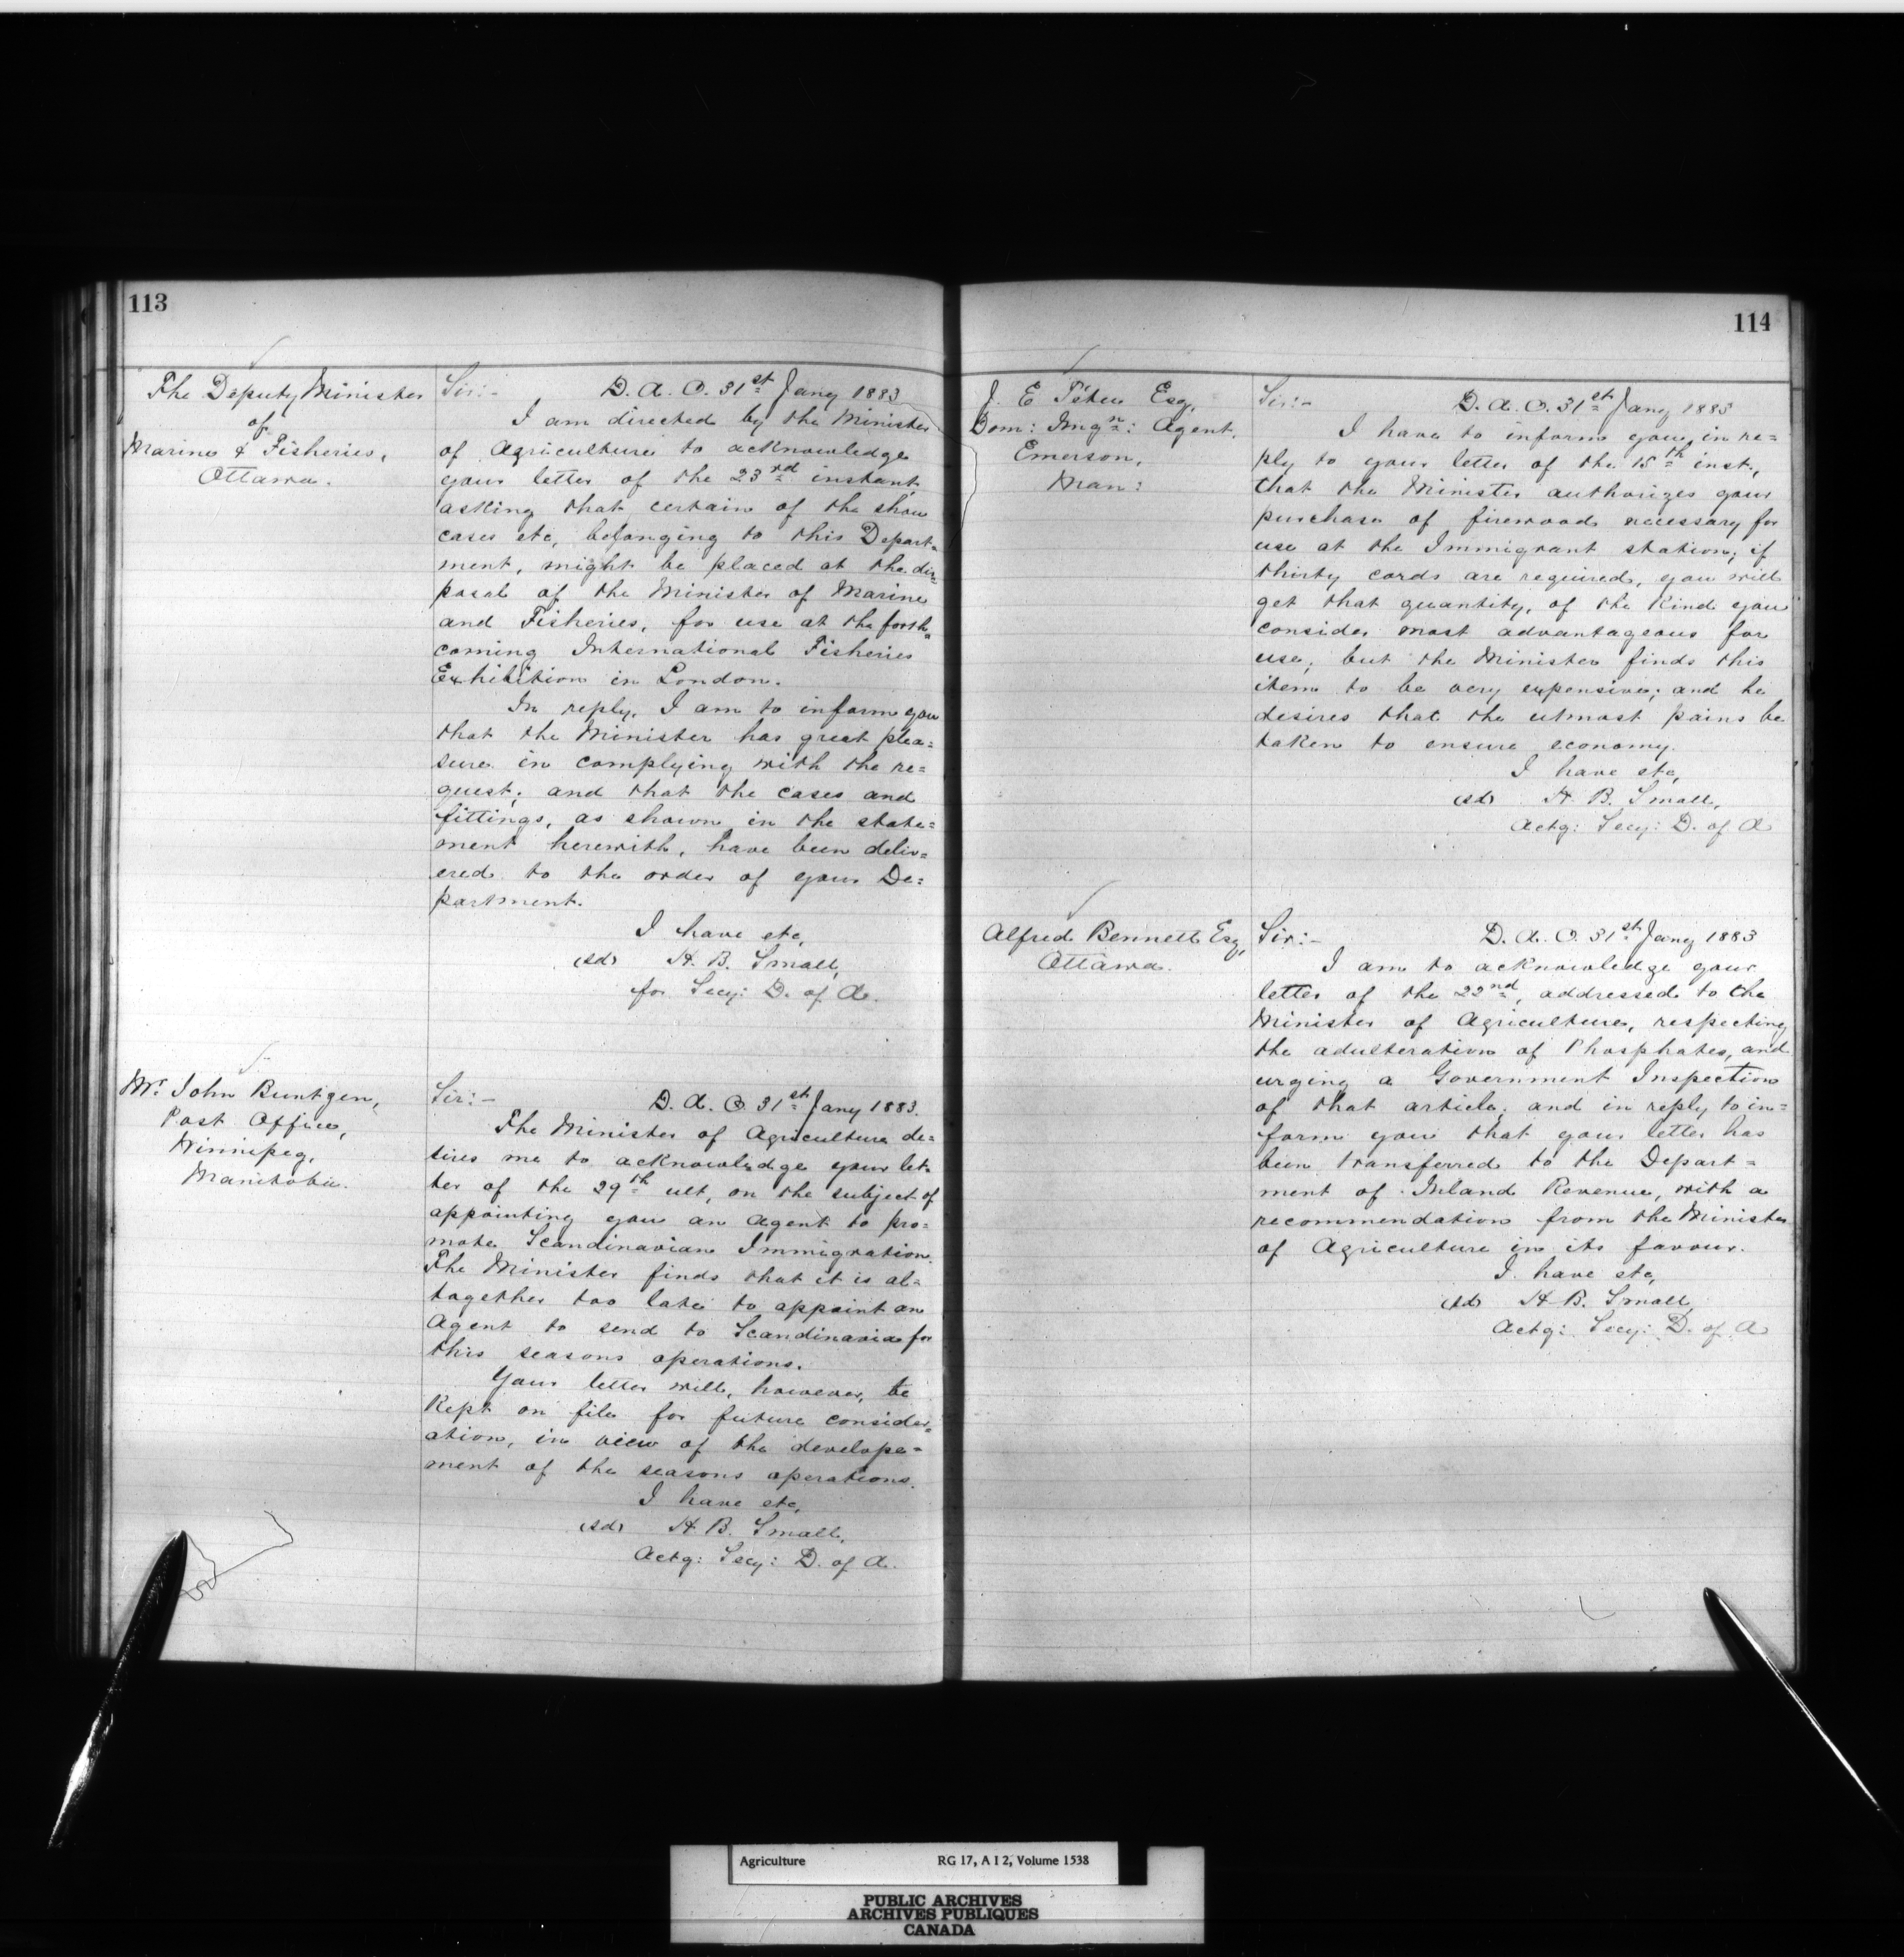 113
The Deputy Minister
of
Marine & Fisheries,
Ottawa.
Sir:- D. A. O. 31st Jany 1883
I am directed by the Minister
of Agriculture to acknowledge
your letter of the 23rd instant,
asking that certain of the show
cases etc, belonging to this Depart=
ment, might be placed at the dis=
posal of the Minister of Marine
and Fisheries, for use at the forth=
coming International Fisheries
Exhibition in London.
In reply, I am to inform you
that the Minister has great plea=
sure in complying with the re=
quest; and that the cases and
fittings, as shown in the state=
ment herewith, have been deliv=
ered to the order of your De=
partment.
I have etc,
(sd) H. B. Small,
for Secy: D. of A.
Mr. John Buntgen,
Post Office,
Winnipeg,
Manitoba.
Sir:- D. A. O. 31st Jany 1883.
The Minister of Agriculture de=
sires me to acknowledge your let=
ter of the 29th ult, on the subject of
appointing you an Agent to pro=
mote Scandinavian Immigration.
The Minister finds that it is al=
together too late to appoint an
Agent to send to Scandinavia for
this seasons operations.
Your letter will, however, be
Kept on file for future consider=
ation, in view of the develope=
ment of the seasons operations.
I have etc,
(sd) H. B. Small,
Actg: Secy: D. of A.
114
J. E Têtu Esq,
Dom: Imgn: Agent,
Emerson,
Man:
Sir:- D. A. O. 31st Jany 1883
I have to inform you, in re=
ply to your letter of the 15th inst,
that the Minister authorizes your
purchase of firewood necessary for
use at the Immigrant station; if
thirty cords are required, you will
get that quantity, of the Kind you
consider most advantageous for
use; but the Minister finds this
item to be very expensive; and he
desires that the utmost pains be
taken to ensure economy.
I have etc,
(sd) H. B. Small,
Actg: Secy: D. of A
Alfred Bennett Esq,
Ottawa.
Sir:- D. A. O. 31st Jany 1883
I am to acknowledge your
letter of the 22nd, addressed to the
Minister of Agriculture, respecting
the adulteration of Phosphates, and
urging a Government Inspection
of that article; and in reply to in=
form you that your letter has
been transferred to the Depart=
ment of Inland Revenue, with a
recommendation from the Minister
of Agriculture in its favour.
I have etc,
(sd) H. B. Small,
Actg: Secy: D. of A
Agriculture RG 17, A I 2, Volume 1538
PUBLIC ARCHIVES
ARCHIVES PUBLIQUES
CANADA